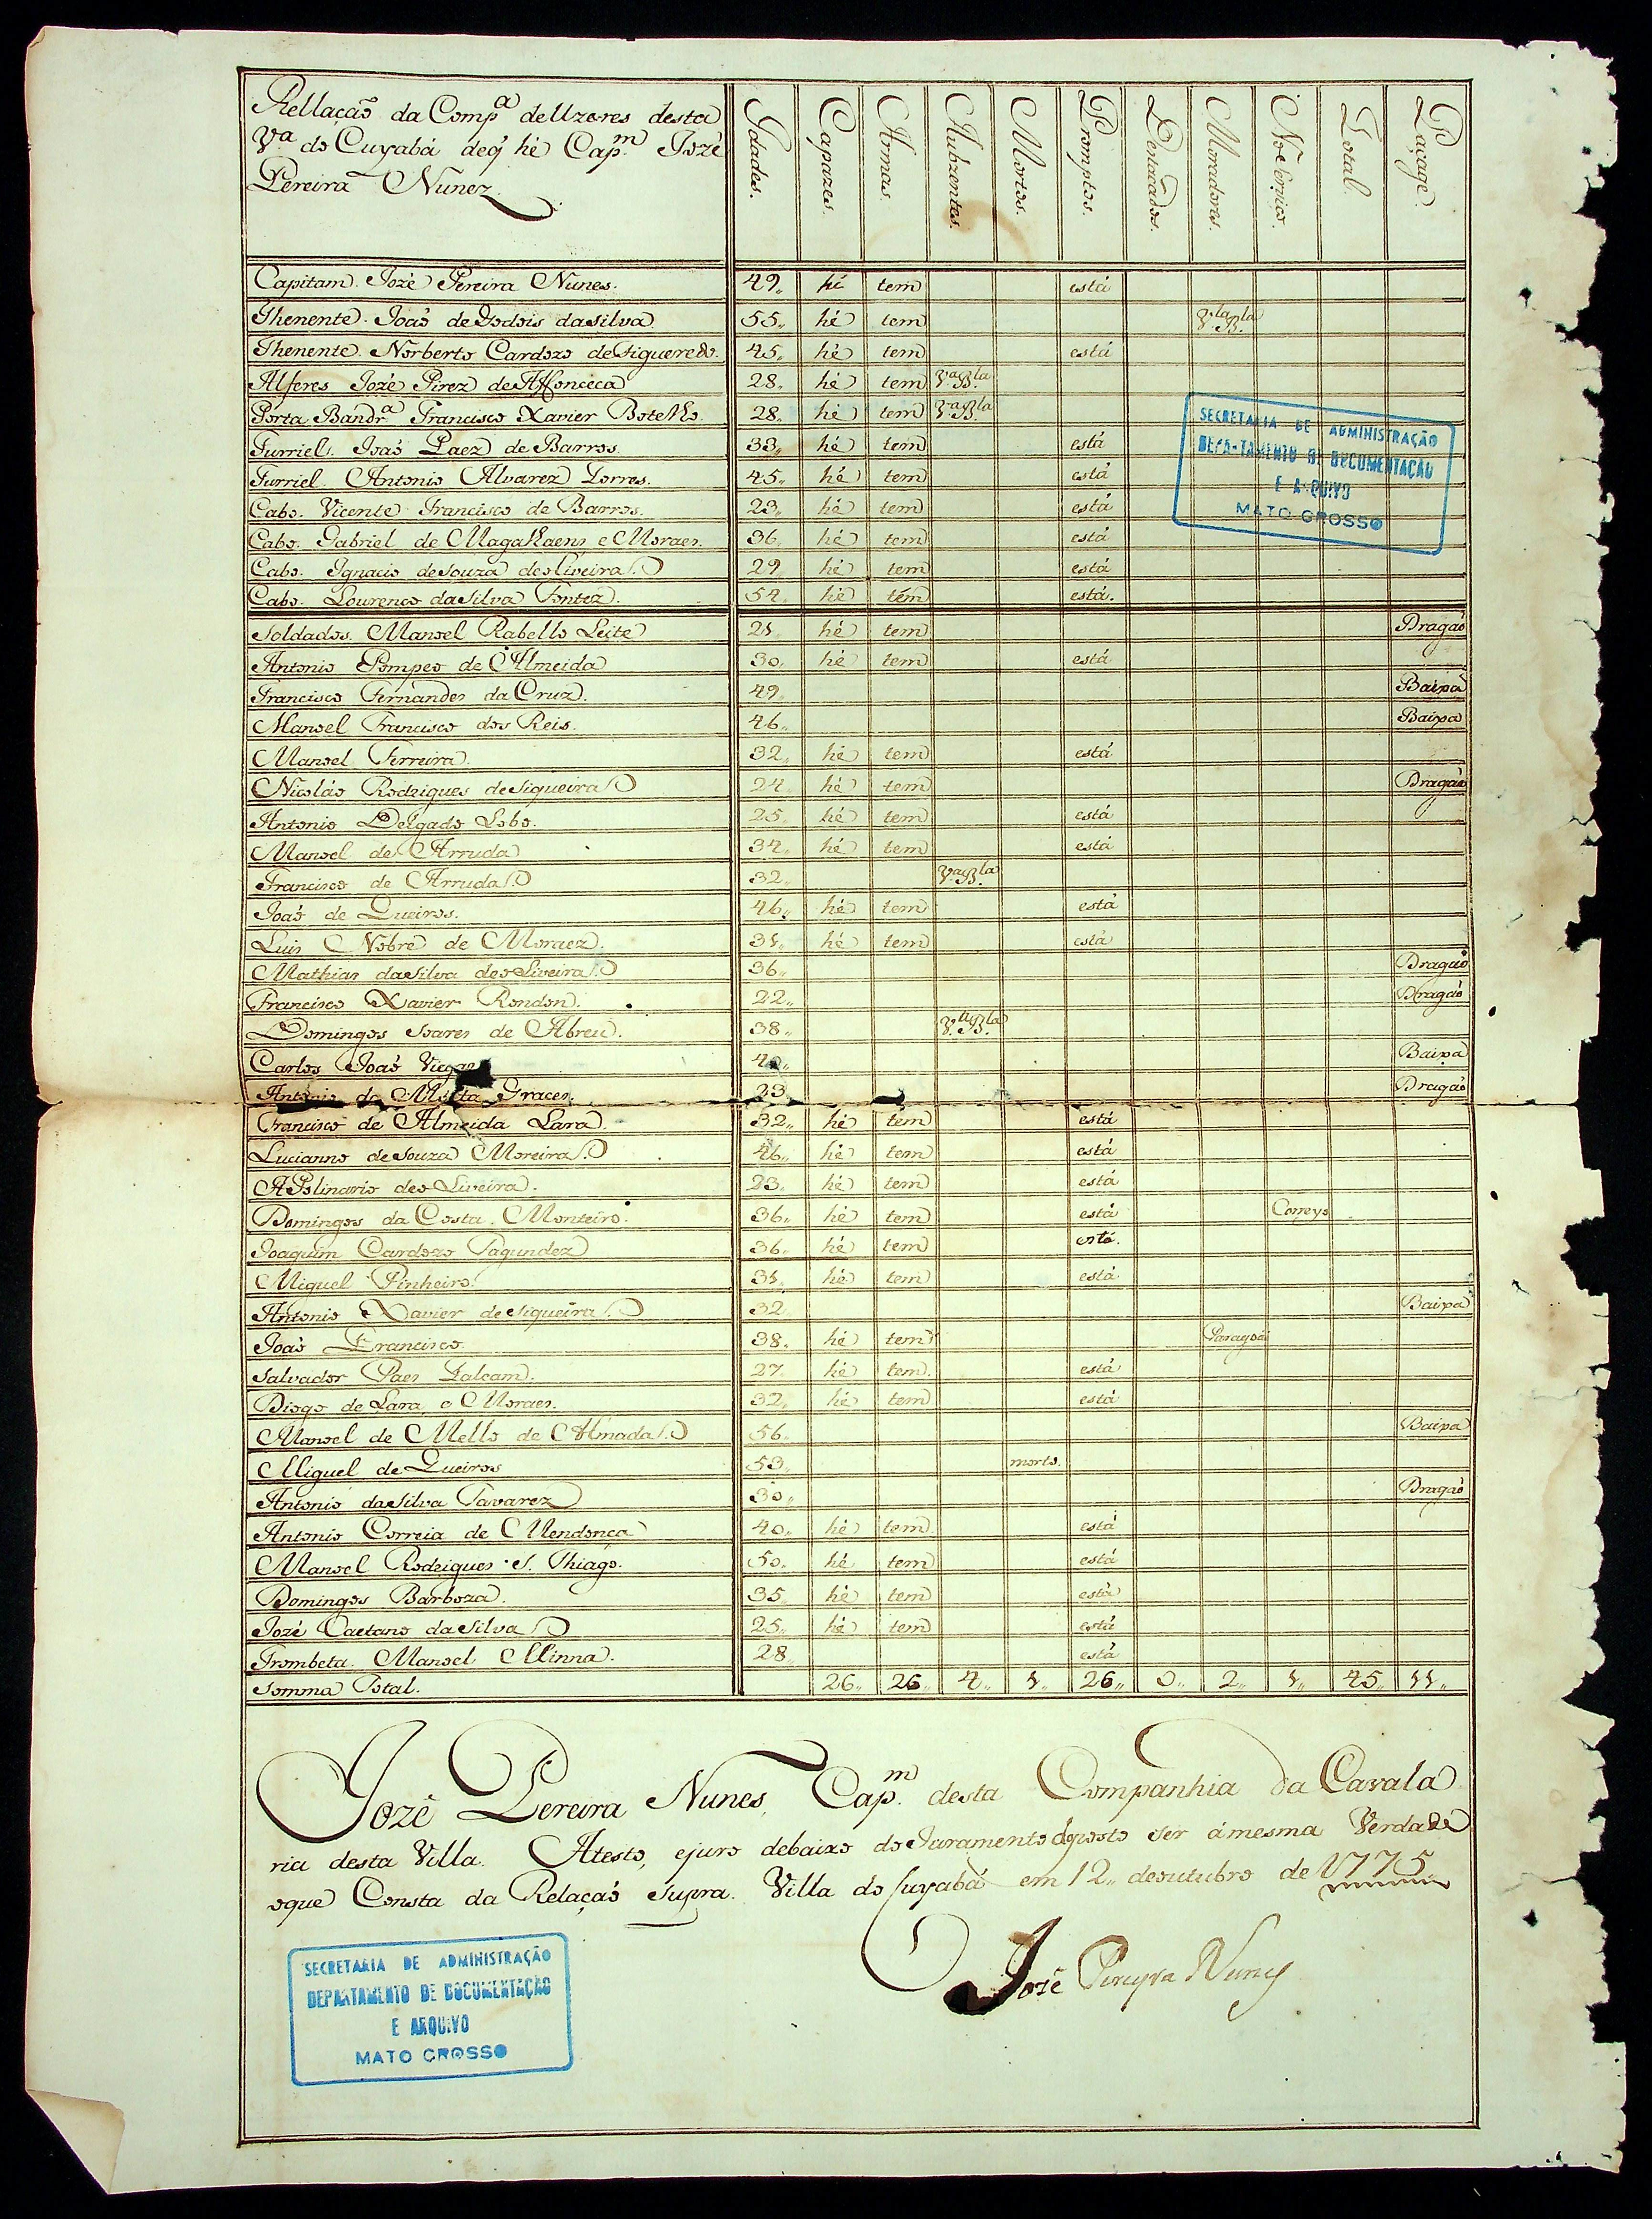 Rellação da Comp.ª de Uzeres desta
V.ª do Cuyabá deq̃ hé Cap.m Jozé
Pereira Nunez.
Idades. Capazes. Armas. Aubzentes. Mortos. Promptos. Destacados. Moradores. No Serviço. Total. Paçage.
Capitam. Jozé Pereira Nunes. 49,, hé tem está
Thenente. Joaõ de Godois da Silva. 55,, hé tem V.la B.la
Thenente. Norberto Cardozo de Figueredo. 45,, hé tem está
Alferes Jozé Pirez de Affonceca 28,, hé tem V.ª B.la
Porta Bandr.ª Francisco Xavier Botelho. 28,, hé tem V.ª B.la
Furriel. Joaõ Paez de Barros. 33,, hé tem está
Furriel. Antonio Alvarez Torres. 45,, hé tem está
Cabo. Vicente Francisco de Barros. 23,, hé tem está
Cabo. Gabriel de Magalhaens e Moraes. 36,, hé tem está
Cabo. Ignacio de Souza de oliveira. 29,, hé tem está
Cabo. Lourenco da Silva Fontez. 54,, hé tem está.
Soldados. Manoel Rabello Leite 21,, hé tem Dragaõ
Antonio Pompeo de Almeida 30,, hé tem está
Francisco Fernandes da Cruz. 49,, Baixa
Manoel Francisco dos Reis. 46,, Baixa
Manoel Ferreira. 32,, hé tem está
Nicoláo Rodrigues de Siqueira 24,, hé tem Dragaõ
Antonio Delgado Lobo. 25,, hé tem está
Manoel de Arruda 34,, hé tem está
Francisco de Arruda. 32,, V.ª B.la
Joaõ de Queiros. 46,, hé tem está
Luis Nobre de Moraez. 31,, hé tem está
Mathias da Silva de oliveira. 36,, Dragaõ
Francisco Xavier Rondon. 22,, Dragaõ
Domingos Soares de Abreu. 38,, V.ª B.la
Carlos Joaõ Viegas 40,, Baixa
Antonio da Motta Graces. 23 Dragaõ
Francisco de Almeida Lara. 32,, hé tem está
Lucianno de Souza Moreira. 46,, hé tem está
APolinario de oliveira. 23,, hé tem está
Domingos da Costa. Monteiro. 36,, hé tem está Correyo
Joaquim Cardozo Fagundez 36,, hé tem está.
Miguel Pinheiro. 31,, hé tem está
Antonio Xavier de Siqueira. 32 Baixa
Joaõ Francisco. 38,, hé tem
Salvador Paes Falcam. 27,, hé tem. está
Diogo de Lara, e Moraes. 32,, hé tem está
Manoel de Mello de Almada. 56,, Baixa
Miguel de Queiros 53,, morto.
Antonio da Silva Tavarez 30,, Dragaõ
Antonio Correia de Mendonca 40,, hé tem. está
Manoel Rodrigues S. Thiago. 50,, hé tem está
Domingos Barboza. 35,, hé tem está
Jozé Caetano da Silva 25,, hé tem está
Trombeta. Manoel Minna. 28,, está
Somma Total. 26,, 26,, 4,, 1,, 26,, 0,, 2,, 1,, 45,, 11,,
Jozé Pereira Nunes, Cap.m desta Companhia da Cavala
ria desta Villa. Atesto, ejuro debaixo do Juramento dposto ser amesma Verdade
oque Consta da Relaçaõ Supra. Villa do Cuyabá em 12,, deoutubro de 1775
Jozé Pereyra Nunes
SECRETARIA DE ADMINISTRAÇÃO
DEPARTAMENTO DE DOCUMENTAÇÃO
E ARQUIVO
MATO GROSSO
SECRETARIA DE ADMINISTRAÇÃO
DEPARTAMENTO DE DOCUMENTAÇÃO
E ARQUIVO
MATO GROSSO